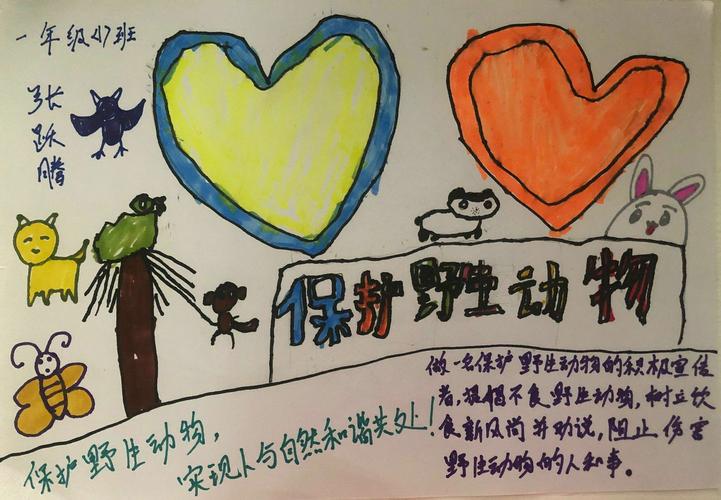 一年级47班
张
跃
腾
保护野生动物
做一名保护野生动物的积极宣传
者,提倡不食野生动物,树立饮
食新风尚并劝说,阻止伤害
野生动物的人和事。
保护野生动物,
实现人与自然和谐共处!